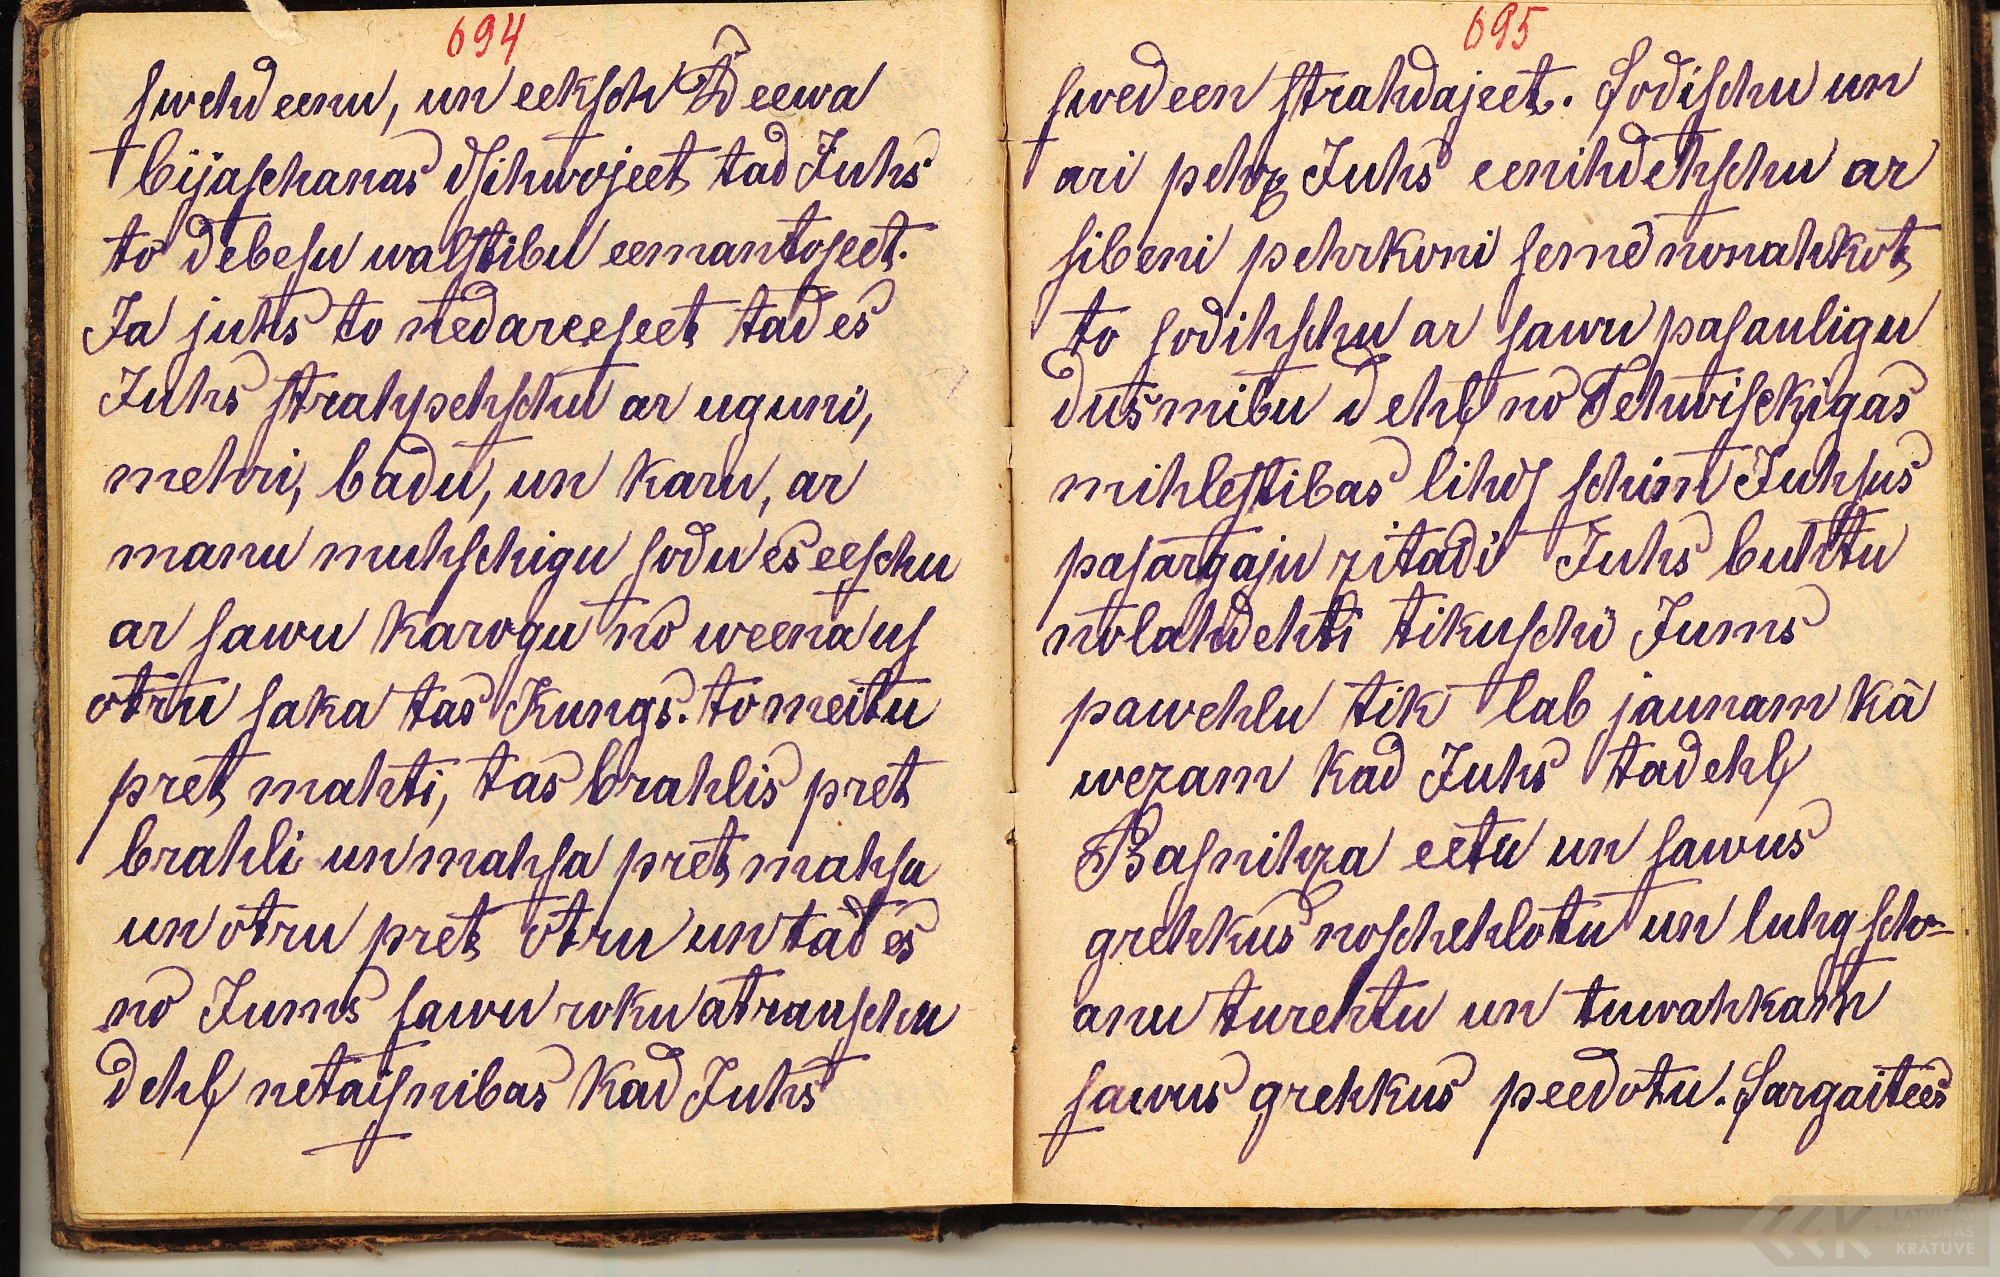 694
swehdeenu, un eeksch Deewa
bijaschanas dsihwojeet tad Juhs
to debesu walstibu eemantoseet.
Ja juhs to nedareeseet tad es
Juhs strahpehschu ar uguni,
mehri, badu, un karu, ar
manu muhschigu sodu es eeschu
ar sawu karogu no weena us
otru saka tas Kungs. to meitu
pret mahti, tas brahlis pret
brahli un mahsa pret mahsu
un otru pret otru un tad es
no Jums sawu roku atrauschu
dehļ netaisnibas kad Juhs
695
swedeen strahdajeet. Sodischu un
ari pehz Juhs eenihdehschu ar
sibeni pehrkoni semē nonahkot
to sodihschu ar sawu pasauligu
dusmibu dehļ no Tehwischķigas
mihlestibas lihds schim Juhsus
pasargaju zitadi Juhs buhtu
nolahdehti tikuschi Jums
pawehlu tik lab jaunam kā
wezam kad Juhs tadehļ
Basnihza eetu un sawus
grehkus noschehlotu un luhgscho-
anu turehtu un tuwahkam
sawus grehkus peedotu. Sargaitees
LATVIEŠU
FOLKLORAS
KRĀTUVE